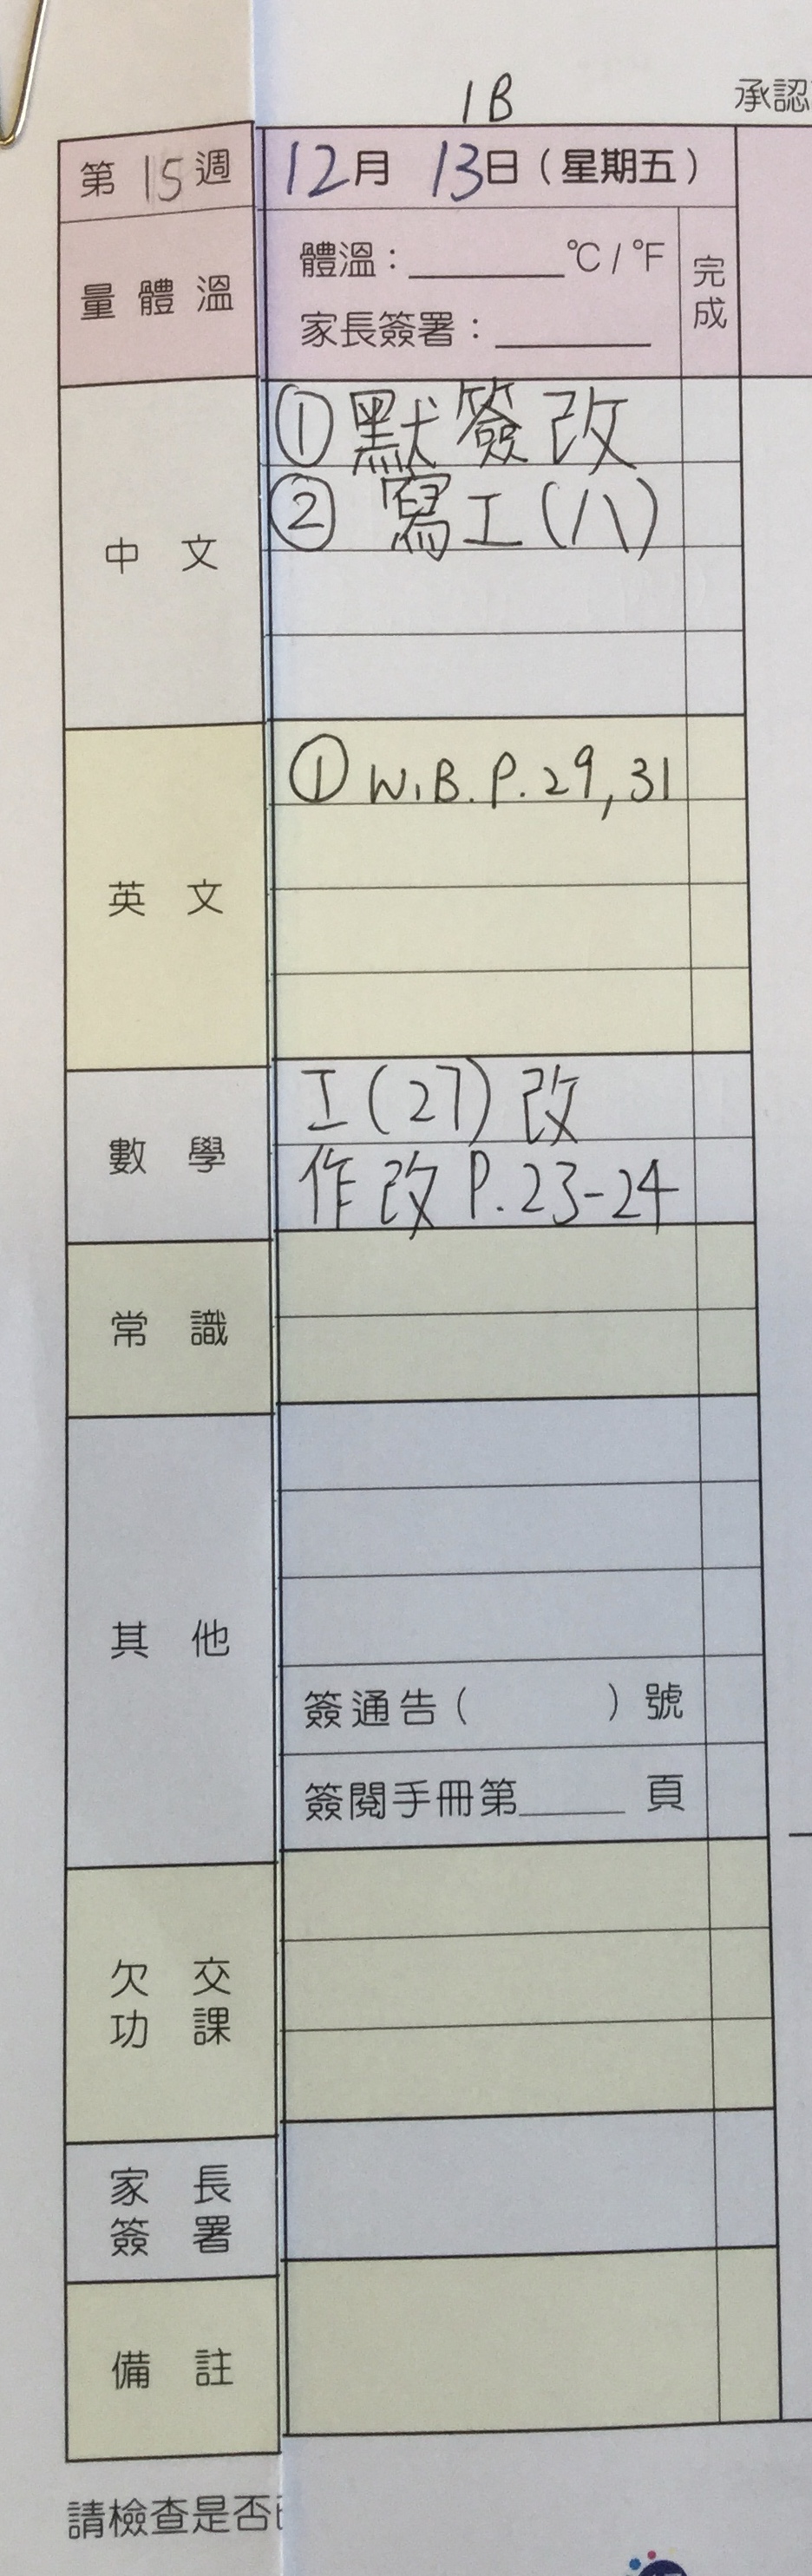 1B
承認
第15週
12月 13日(星期五)
量體溫
體溫:______°C / °F
家長簽署:______
完成
中文
① 默簽改
② 寫工(八)
英文
① W.B. P. 29, 31
數學
工(27)改
作改 P. 23-24
常識
其他
簽通告( )號
簽閱手冊第____頁
欠交
功課
家長
簽署
備註
請檢查是否